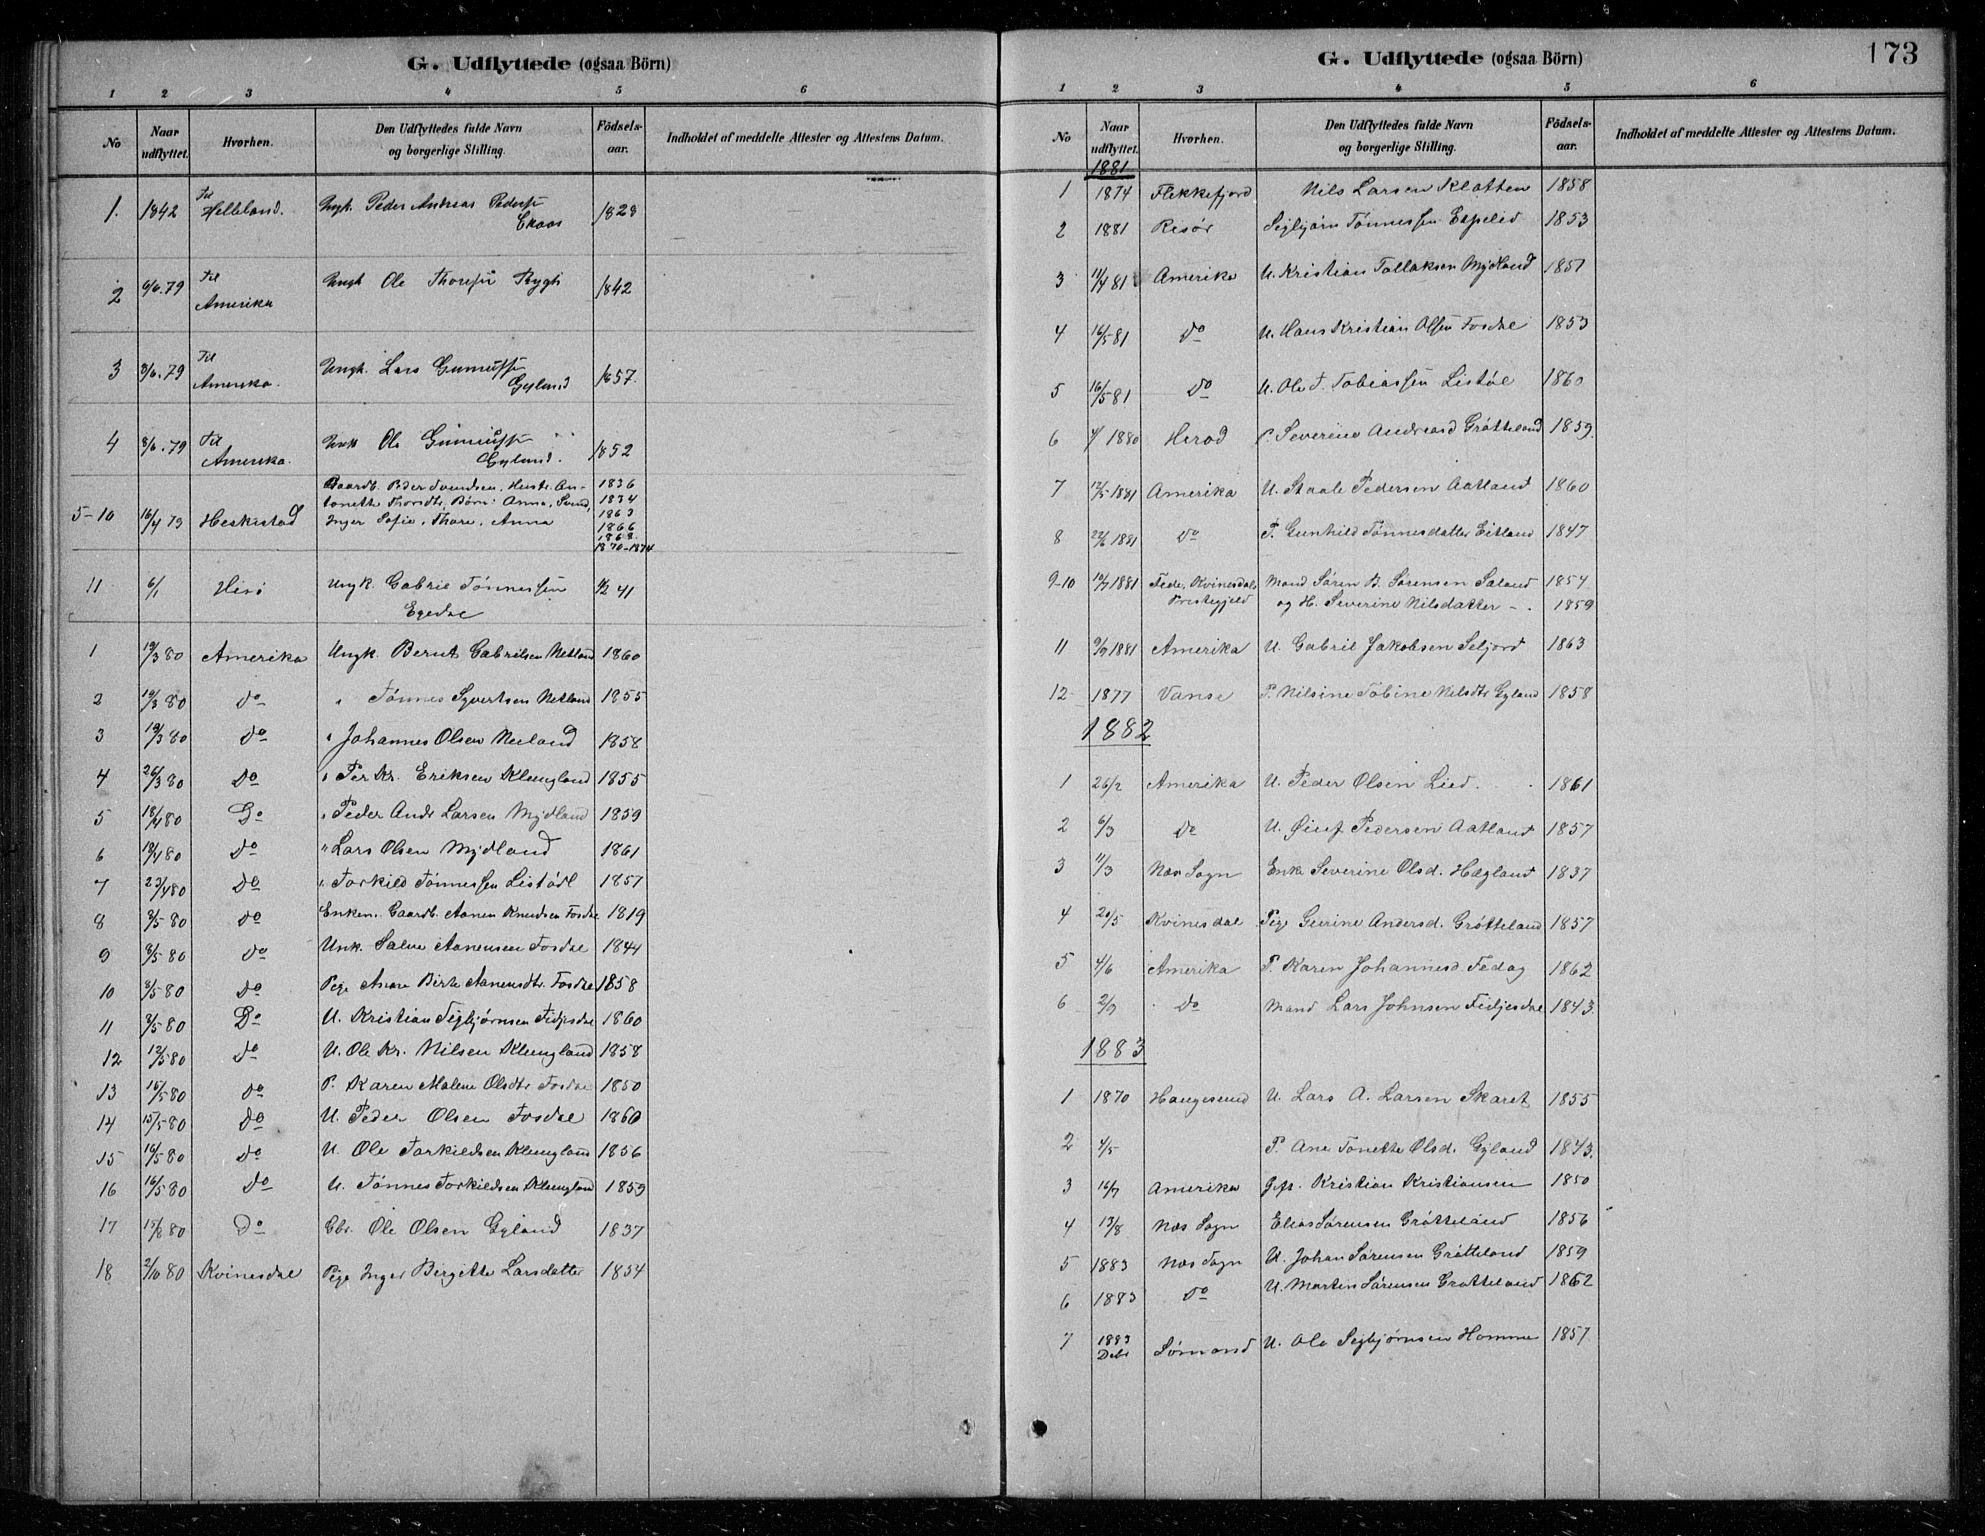 G. Udflyttede (ogsaa Börn)
1 2 3 4 5 6
No Naar udflyttet. Hvorhen. Den Udflyttedes fulde Navn og borgerlige Stilling. Födsels-aar. Indholdet af meddelte Attester og Attestens Datum.
1. 1842 Til Helleland. Ungk. Peder Andreas Peders. 1828
2 6/6.79 Til Amerika Ungk Ole Thores. 1842
3 8/6.79 Til Amerika. Ungk. Lars Gunnufs. Gyland 1857.
4 8/6.79 Til Amerika. Ungk Ole Gunnufs. Gyland. 1852
5-10 16/4 79 Heskestad Gaardb. Peder Svendsen, Hustr. An-
tonette Thorsdtr, Børn: Anna, Svend,
Inger Sofie, Thore, Anna
1836
1834
1863
1866
1868
1870-1874
11 6/1 Ungk. Gabriel Tönnessen
Egedal 41
1 19/3 80 Amerika Ungk. Bernt Gabrielsen Netland 1860
2 19/3 80 do " Tönnes Syvertsen Netland 1855
3 19/3 80 Do " Johannes Olsen Netland 1858
4 26/3 80 Do " Per Kr. Eriksen Klungland 1855
5 18/4 80 Do " Peder Andr Larsen Mydland 1859
6 19/4 80 Do " Lars Olsen Mydland 1861
7 23/4 80 Do " Torkild Tönnessen Listöl 1857
8 3/5 80 do Enkem. Gaardb. Aanen Knudsen Fosdal 1819
9 3/5 80 do Unk. Salve Aanensen Fosdal 1844
10 3/5 80 do Pige Anne Birte Aanensdtr. Fosdal 1858
11 3/5 80 Do U. Kristian Sigbjørnsen Fidjedal 1860
12 12/5 80 do U. Ole Kr. Nilsen Klungland 1858
13 16/5 80 do P. Karen Malene Olsdtr Fosdal 1850
14 15/5 80 Do U. Peder Olsen Fosdal 1860
15 16/5 80 do U. Ole Torkildsen Klungland 1856
16 16/5 80 do U. Tönnes Torkildsen Klungland 1859
17 15/8 80 Do Gbr. Ole Olsen Gyland 1837
18 2/10 80 Kvinesdal Pige Inger Birgitte Larsdatter 1854
G. Udflyttede (ogsaa Börn) 173
1 2 3 4 5 6
No Naar udflyttet. Hvorhen. Den Udflyttedes fulde Navn og borgerlige Stilling. Födsels-aar. Indholdet af meddelte Attester og Attestens Datum.
1881
1 1874 Flekkefjord Nils Larsen Klatten 1858
2 1881 Risör Sigbjørn Tönnessen Espelid 1853
3 11/4 81 Amerika U. Kristian Tollaksen Mydland 1857
4 16/5 81 do U. Hans Kristian Olsen Fosdal 1853
5 16/5 81 do U. Ole T. Tobiassen Listöl 1860
6 1880 P. Severine Andreasd Grötteland 1859.
7 12/5 1881 Amerika U. Staale Pedersen Aatland 1860
8 22/6 1881 do P. Gunhild Tönnesdatter Eitland 1847
9-10 10/7 1881 Fede, Kvinesdals Prestegjeld Mand Sören B. Sörensen Saland 1854
og H. Severine Nilsdatter - . 1859
11 9/9 1881 Amerika U. Gabriel Jakobsen Seljord 1863
12 1877 Vanse P. Nilsine Tobine Nilsdtr Gyland 1858
1882
1 26/2 Amerika U. Peder Olsen Lied. 1861
2 6/3 do U. Pedersen Aatland 1857
3 11/3 Næs Sogn Enke Severine Olsd. Hægland 1837
4 20/5 Kvinesdal Pige Gurine Andersd. Grötteland 1857
5 4/6 Amerika P. Karen Johannesd. Fedog 1862
6 2/9 do Mand Lars Johnsen Fidjedal 1843
1883
1 1870 Haugesund U. Lars A. Larsen Skaret 1855
2 4/5 P. Ane Tonette Olsd. Gyland 1843.
3 16/7 Amerika Gft. Kristian Kristiansen 1850
4 13/8 Næs Sogn Elias Sörensen Grötteland 1856
5 1883 Næs Sogn U. Johan Sörensen Grötteland 1859
6 1883 do U. Martin Sörensen Grötteland 1862
7 1883 U. Ole Sigbjørnsen Homme 1857